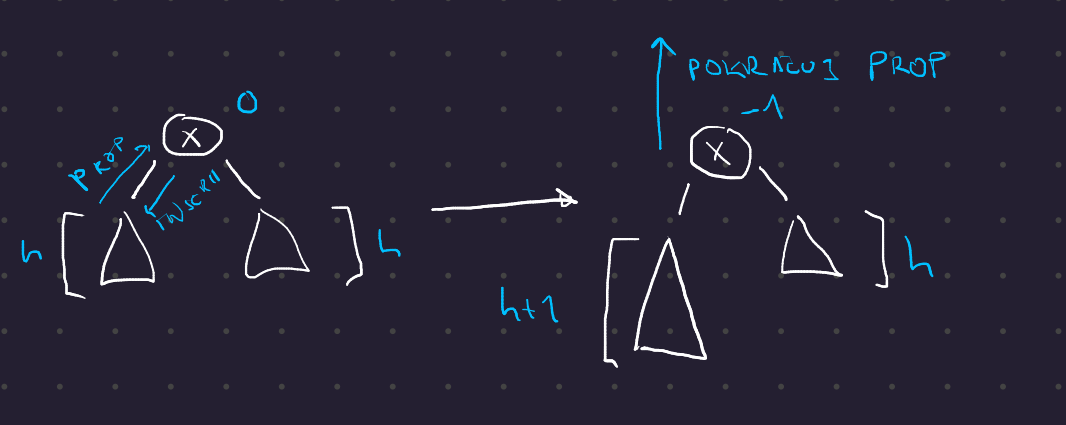 0
X
PROP
INSERT
h
h
POKRAČUJ PROP
-1
X
h+1
h